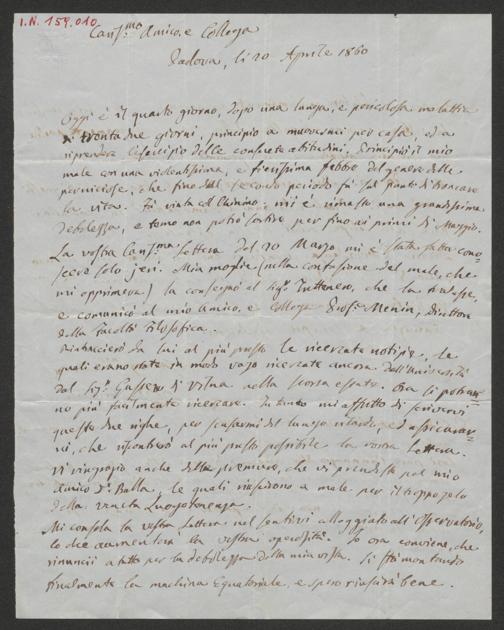 I.N. 159.010
Cariss.mo Amico, e Collega
Padova, li 20 Aprile 1860
Oggi è il quarto giorno, dopo una lunga, e pericolosa malattia
di trentadue giorni, principio a muovermi per casa, ed a
riprendere l'esercizio delle consuete abitudini. Principiò il mio
male con una violentissima, e fierissima febbre del genere delle
perniciose, che fino dal secondo periodo fù sul punto di troncare
la vita. Fù vinta col Chinino: mi è rimasta una grandissima
debolezza, e temo non potrò sortire per fino ai primi di Maggio.
La vostra Cariss.ma Lettera del 20 Marzo mi è stata fatta cono-
scere solo jeri. Mia moglie (nella confusione del male, che
mi opprimeva) la consegnò al Sig.r Trettenero, che la tradusse,
e comunicò al mio amico, e Collega Prof.r Menin, Direttore
della Facoltà Filosofica.
da lui al più presto le ricercate notizie, le
quali erano state in modo vago ricercate ancora dall'Università
dal Sig.r di Vilna nella scorsa estate. Ora si potran-
no più facilmente ricercare. Intanto mi affretto di scrivervi
queste due righe, per scusarmi del lungo ritardo, ed assicurar-
vi, che riscontrerò al più presto possibile la vostra Lettera.
Vi ringrazio anche delle premure, che vi prendeste pel mio
amico D.r Balla, le quali riuscirono a male per il troppo zelo
della Luogotenenza.
Mi consola la vostra Lettera nel sentirvi alloggiato all'Osservatorio,
lo che aumenterà la vostra operosità. Io ora conviene, che
rinuncii a tutto per la debolezza della mia vista. Si stà montando
finalmente la macchina Equatoriale, e spero riuscirà bene.